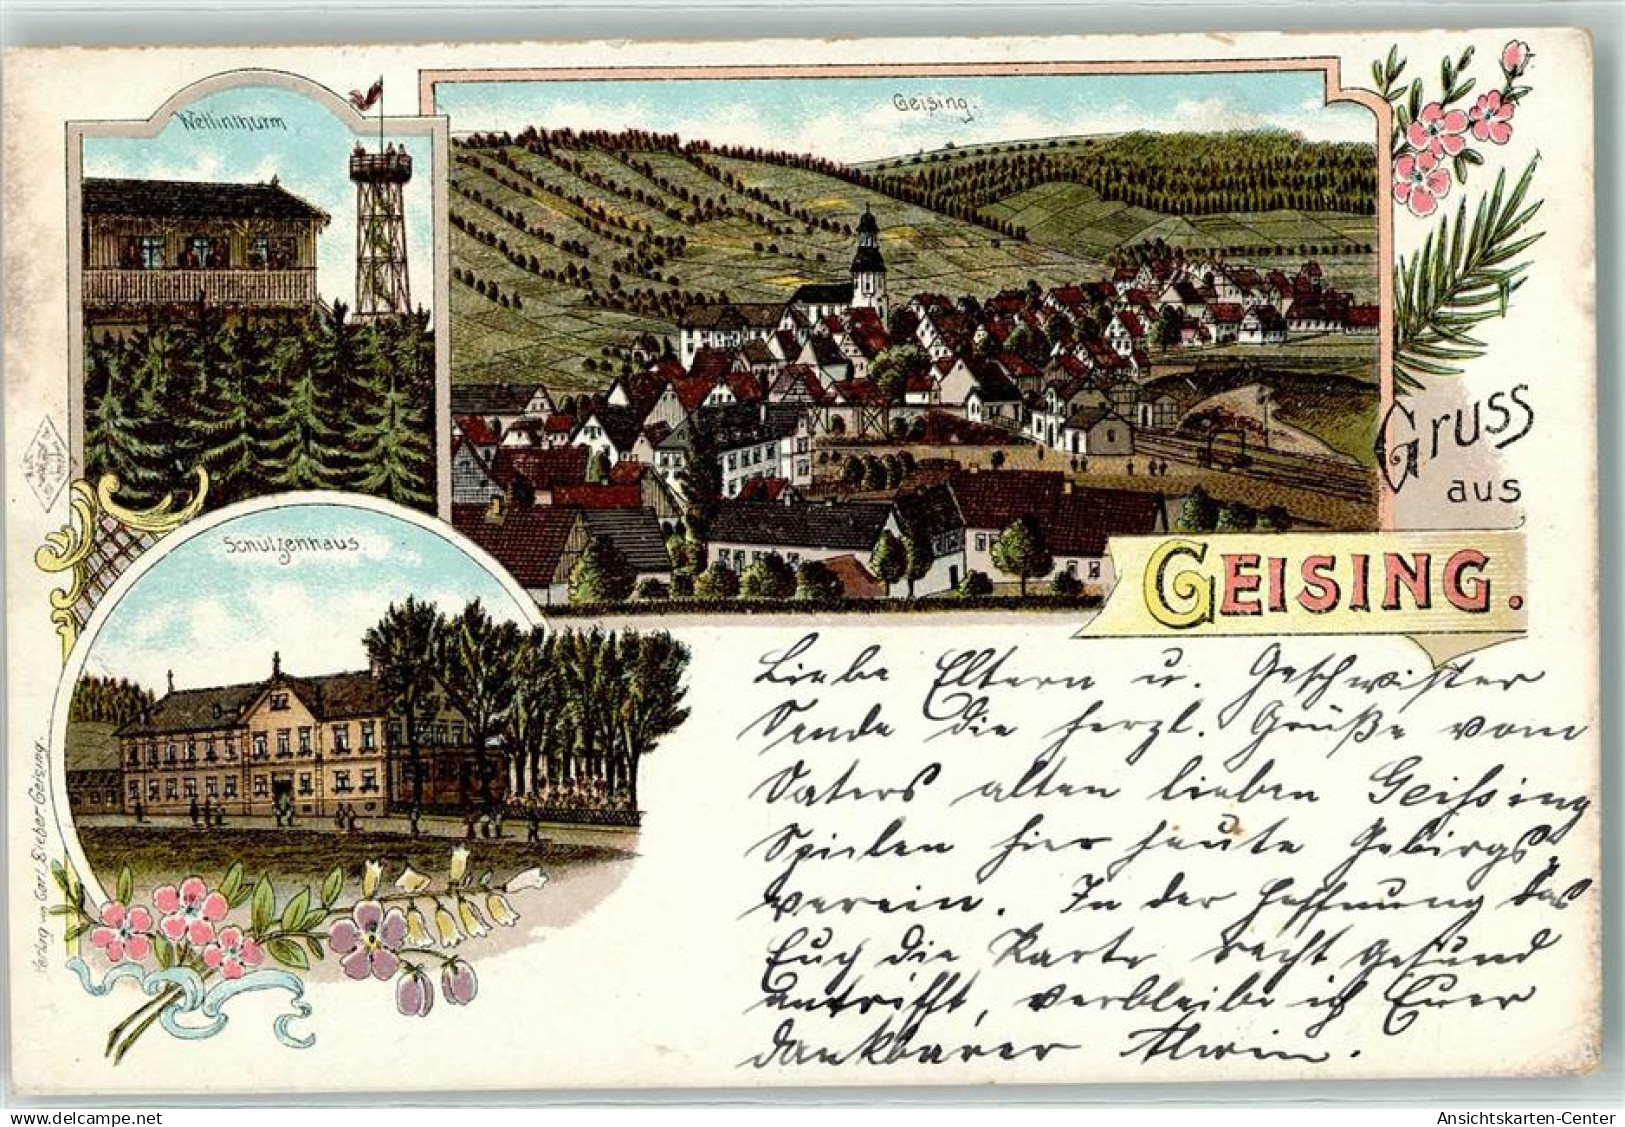 Wettinthurm
Geising.
Schützenhaus.
Gruss
aus
GEISING.
Liebe Eltern u. Geschwister
Sende die herzl. Grüße vom
Vaters alten lieben Geissing
Spielen hier heute Gebirgs-
verein. In der Hoffnung das
Euch die Karte recht gesund
antrifft, verbleibe ich Euer
dankbarer Alwin.
Verlag von Carl Sieber Geising.
delcampe.net
Ansichtskarten-Center